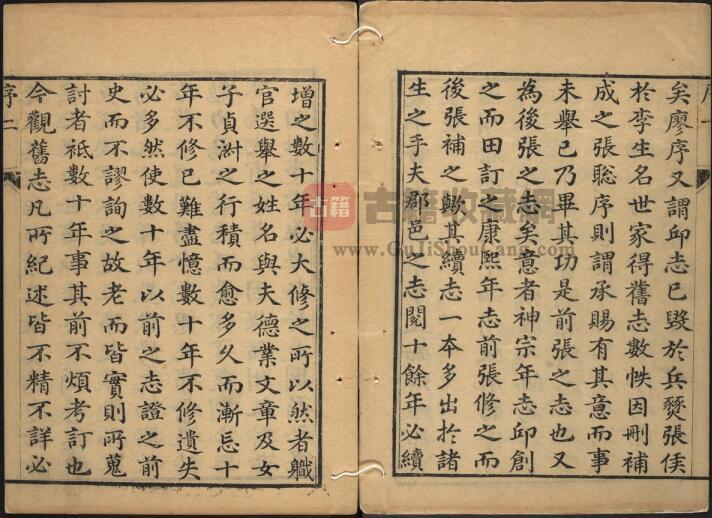 矣廖序又謂邱志已毀於兵燹張侯
於李生名世家得舊志數帙因刪補
成之張聡序則謂承賜有其意而事
未舉已乃畢其功是前張之志也又
為後張之志矣意者神宗年志邱創
之而田訂之康熙年志前張修之而
後張補之歟其續志一本多出於諸
生之手夫郡邑之志閱十餘年必續
序二
增之數十年必大修之所以然者職
官選舉之姓名與夫德業文章及女
子貞淑之行積而愈多久而漸忘十
年不修已難盡憶數十年不修遺失
必多然使數十年以前之志證之前
史而不謬詢之故老而皆實則所蒐
討者祇數十年事其前不煩考訂也
今觀舊志凡所紀述皆不精不詳必
古籍 古籍收藏網
www.GuJiShouCang.com